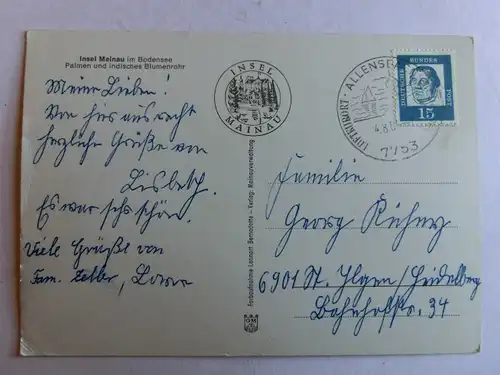 Insel Mainau im Bodensee
Palmen und indisches Blumenrohr
Meine Lieben!
Von hier aus recht
herzliche Grüße von
Lisbeth.
Es war sehr schön.
Viele Grüße von
Fam. Zeller,
INSEL
MAINAU
Farbaufnahme Lennart Bernadotte - Verlag: Mainauverwaltung
LUFTKURORT · ALLENSB
7753
DEUTSCHE BUNDESPOST
15
Familie
Georg
6901 St. Ilgen/Heidelberg
Bahnhofstr. 34